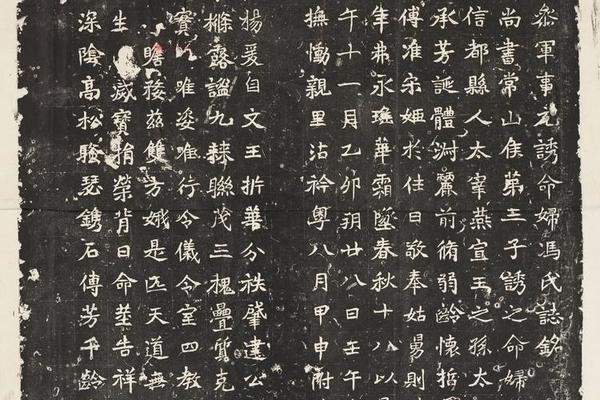 叅軍事元誘命婦馮氏誌銘
尚書常山侯第三子誘之命婦
信都縣人太宰燕宣王之孫太
承芳誕體澍麗前脩弱齡懷哲
傅准宗姬於往日敬奉姑舅則
年弗永瓊華霜墜春秋十八以
午十一月乙卯朔廿八日壬午
撫慟親里沾衿粵八月甲申附
楊爰自文王折華分袟肇建公
露謐九棘聯茂三槐疊質克
寶唯姿唯行令儀令室四教
瞻茲雙芳娥是匹天道無
生威寶捐榮背日命塋告祥
深陰高松騷瑟鐫石傳芳千齡